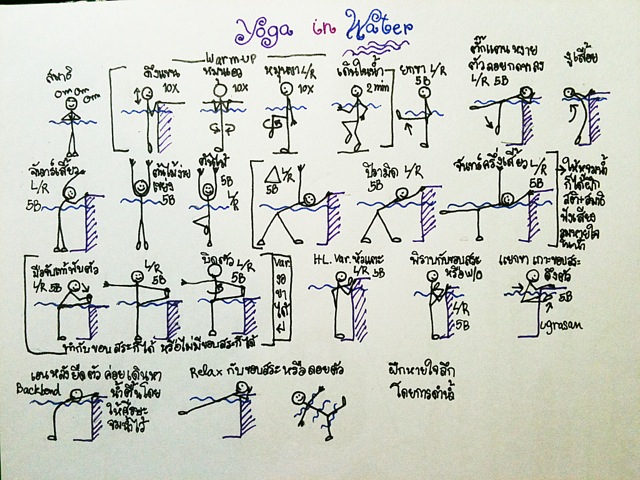 Yoga in Water
Warm-up
สมาธิ
om om om
ดึงแขน
10X
หมุนเอว
10X
หมุนขา L/R
10X
เดินในน้ำ
2 min
ยกขา L/R
5B
ตั๊กแตน หงาย
ตัวลอยกดขาลง
L/R 5B
งูเลื้อย
จันทร์เสี้ยว
L/R
5B
ต้นไม้
5B
L/R
L/R
5B
ปิรามิด L/R
5B
จันทร์ครึ่งเสี้ยว L/R
5B
ให้หูจมน้ำ
ก็ได้ฝึก
สติ+สมาธิ
ฟังเสียง
ลมหายใจ
ในน้ำ
L/R 5B
L/R
5B
บิดตัว
L/R
5B
Var.
งอ
ขา
ได้
ทำกับขอบสระก็ได้ หรือไม่มีขอบสระก็ได้
HL. Var. หัวแตะ
L/R 5B
พิราบกับขอบสระ
หรือ w/o
L/R
5B
แยกขา เกาะขอบสระ
ดึงตัว
5B
ugrasan
เอนหลังยืดตัว ค่อยเดินหา
Backbend
น้ำตื้นโดย
ให้ศีรษะ
จมน้ำไว้
Relax กับขอบสระ หรือ ลอยตัว
ฝึกหายใจลึก
โดยการดำน้ำ